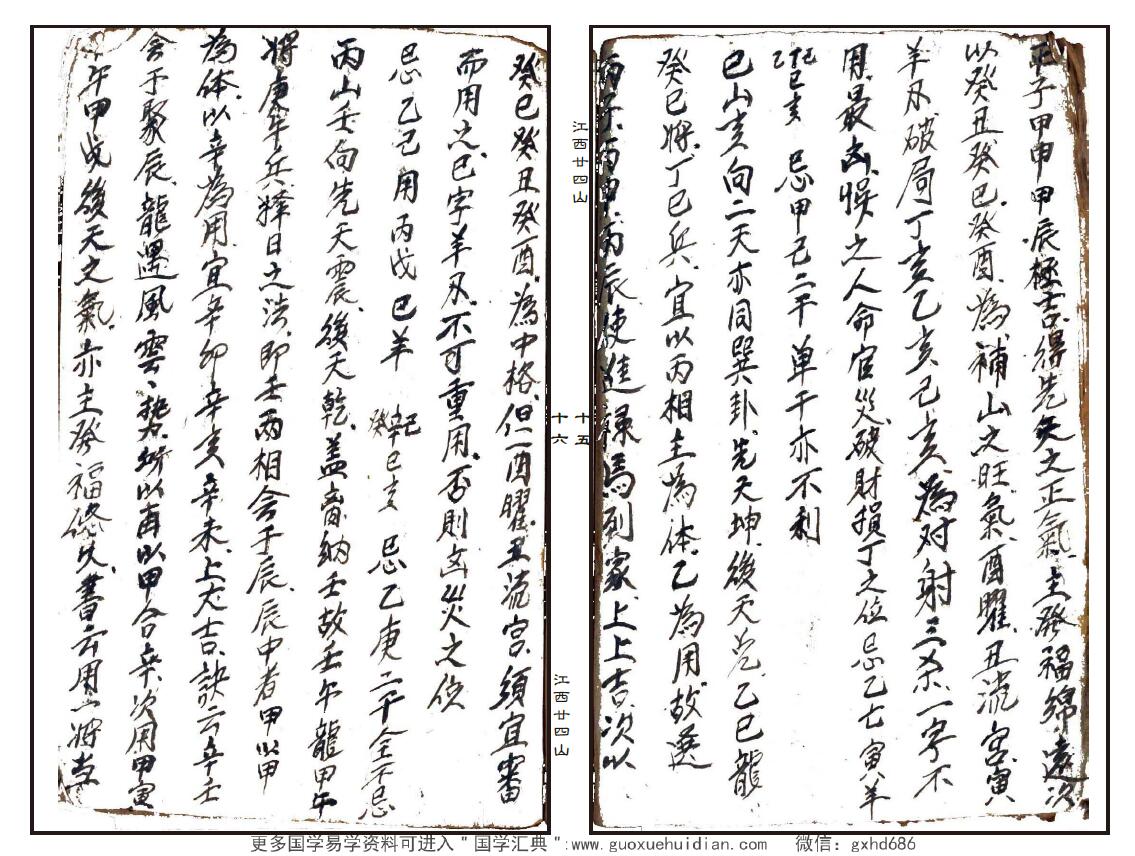 丙子甲申甲辰極吉得先天之正氣主發福綿遠次
以癸丑癸巳癸酉為補山之旺氣酉曜丑流宮寅
羊刃破局丁亥乙亥己亥為对射三杀一字不
用最凶悮之人命官災破財損丁之位忌乙七寅羊
乙巳亥 忌甲己二干单干亦不利
巳山亥向二天亦同巽卦先天坤後天兑乙巳龍
癸巳將丁巳兵宜以丙相主為体乙為用故選
丙子丙申丙辰使進禄馬到家上上吉次以
江西廿四山
十五
癸巳癸丑癸酉為中格但酉曜丑流宮須宜審
而用之巳字羊刃不可重用否則凶災之位
忌乙己用丙戊巳羊 癸巳亥 忌乙庚二干全不忌
丙山壬向先天震後天乾盖离納壬故壬午龍甲午
將庚午兵擇日之法即壬丙相会于辰辰中者甲以甲
為体以辛為用宜辛卯辛亥辛未上大吉訣云辛壬
会于聚辰龍遇風雲之势矫以再以甲合辛次用甲寅
午甲戌後天之氣亦主發福悠久書云用將与
江西廿四山
十六
更多国学易学资料可进入"国学汇典":www.guoxuehuidian.com 微信：gxhd686